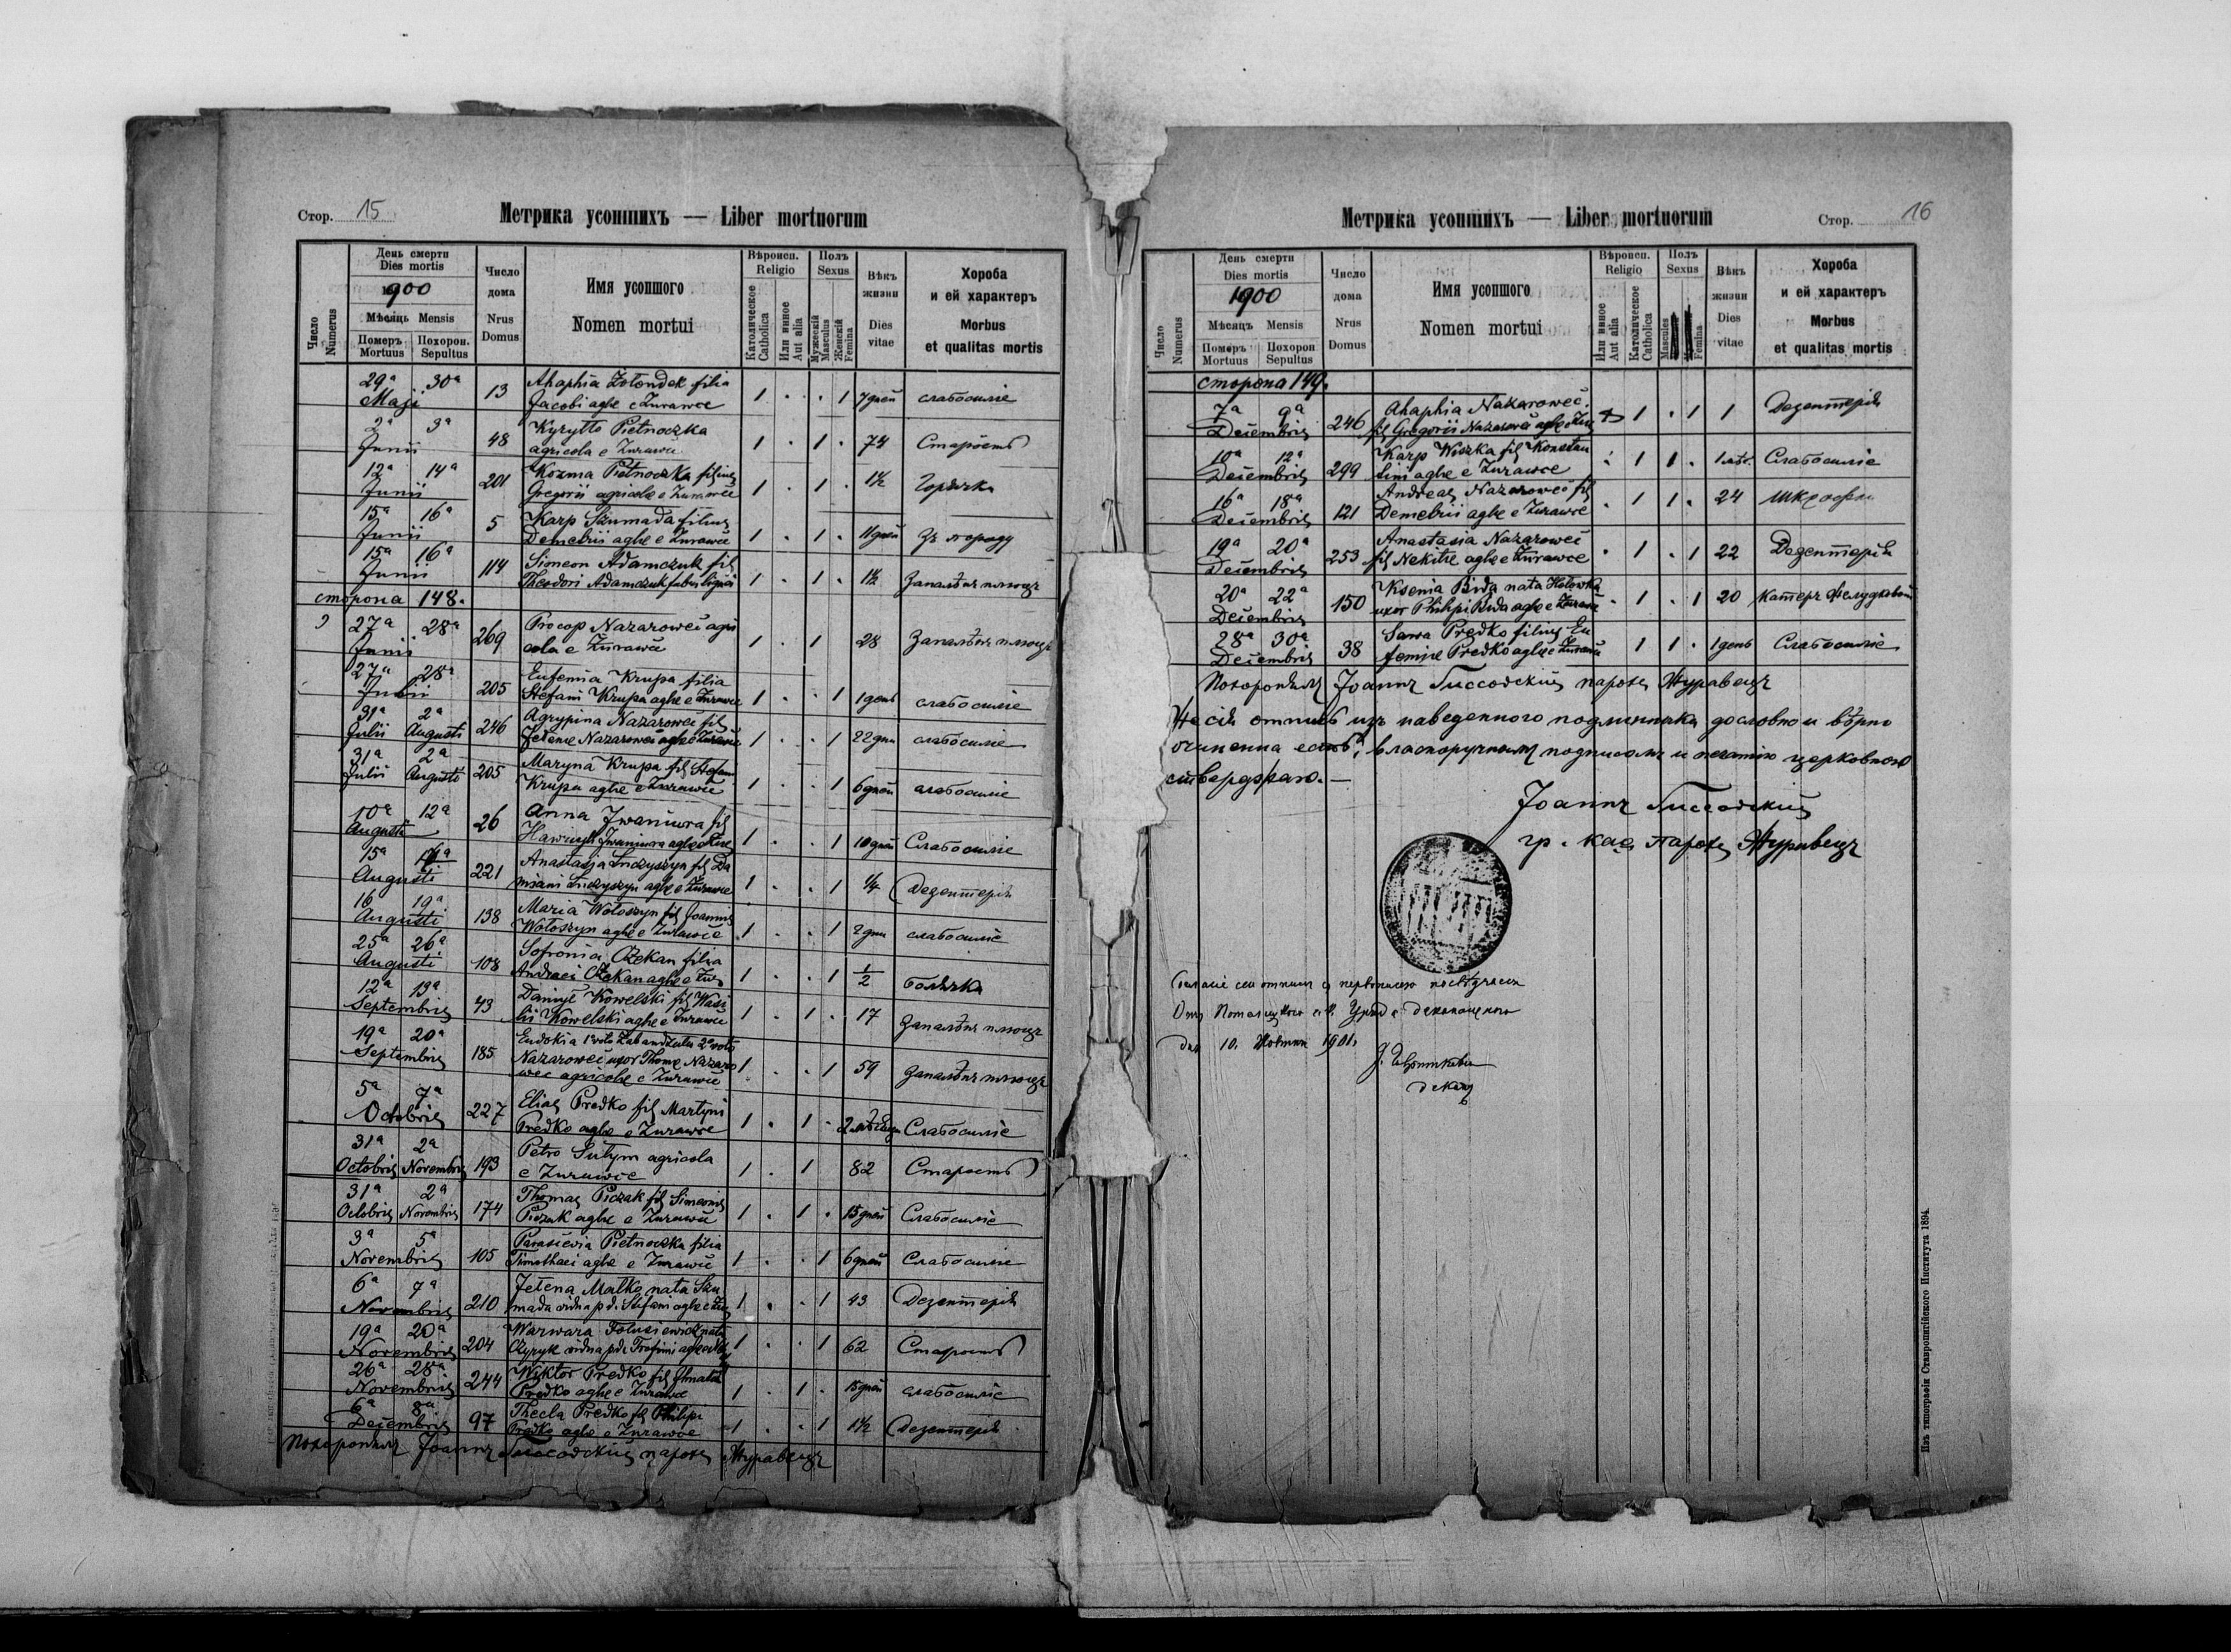 Стор. 15
Метрика усопшихъ — Liber mortuorum
Число Numerus
День смерти
Dies mortis
1900
Мѣсяць Mensis
Померъ Mortuus
Похорон. Sepultus
Число дома
Nrus Domus
Имя усопшого
Nomen mortui
Вѣроисп. Religio
Католическое Catholica
Или инное Aut alia
Полъ Sexus
Мужескій Masculus
Женскій Femina
Вѣкъ жизни
Dies vitae
Хороба
и ей характеръ
Morbus
et qualitas mortis
29ª 30ª Maji 13 Ahaphia Zołondek filia
Jacobi aglae e Zurawce 1 . . 1 7 дней слабосиліе
2ª 3ª Junii 48 Kyryłło Pietnoczka
agricola e Zurawce 1 . 1 . 74 Старость
12ª 14ª Junii 201 Kozma Pietnoczka filius
Gregorii agricolae e Zurawce 1 . 1 . 1½ Горячка
15ª 16ª Junii 5 Karp Szumada filius
Demetrii aglae e Zurawce 1 . 1 . 11 дней Зъ породу
15ª 16ª Junii 114 Simeon Adamczuk fil
Theodori Adamczuk fabri lignarii 1 . 1 . 1½ Запалѣнъ плюцъ
сторона 148.
27ª 28ª Junii 269 Procop Nazarowec agri
cola e Zurawce 1 . 1 28 Запалѣнъ плюцъ
27ª 28ª Julii 205 Eufemia Krupa filia
Stefani Krupa aglae e Zurawce 1 . . 1 1 день слабосиліе
31ª Julii 2ª Augusti 246 Agrypina Nazarowec fil
Jeleme Nazarowec aglae e Zurawce 1 . . 1 22 дни слабосиліе
31ª Julii 2ª Augusti 205 Maryna Krupa fil Stefani
Krupa aglae e Zurawce 1 . . 1 6 дней слабосиліе
10ª 12ª Augusti 26 Anna Iwaniura fil
Hawryły Iwaniura aglae e Zur 1 . . 1 10 дней Слабосиліе
15ª Augusti 221 Anastasia Luczyszyn fil Da
miani Luczyszyn aglae e Zurawce 1 . . 1 ¼ Дезентерія
16 19ª Augusti 138 Maria Wołoszyn fil Joannis
Wołoszyn aglae e Zurawce 1 . . 1 2 дни слабосиліе
25ª 26ª Augusti 108 Sofronia Czekan filia
Andreei Czekan aglae e Zur 1 . . 1 ½ болячка
12ª 13ª Septembris 43 Daniył Kowelski fil Wasi
lii Kowelski aglae e Zurawce 1 . 1 . 17 Запалѣнъ плюцъ
19ª 20ª Septembris 185 Eudokia 1º voto 2º voto
Nazarowec uxor Thome Nazaro
wec agricolae e Zurawce 1 . . 1 59 Запалѣнъ плюцъ
5ª 7ª Octobris 227 Elias Predko fil Martyni
Predko aglae e Zurawce 1 . 1 . 2 мѣсяци Слабосиліе
31ª Octobris 2ª Novembris 193 Petro Sułym agricola
e Zurawce 1 . 1 82 Старость
31ª Octobris 2ª Novembris 174 Thomas Piczak fil Simeonis
Piczak aglae e Zurawce 1 . 1 . 15 дней Слабосиліе
3ª 5ª Novembris 105 Parascevia Pietnoczka filia
Timothaei aglae e Zurawce 1 . . 1 6 дней Слабосиліе
6ª 7ª Novembris 210 Jełena Malko nata Szu
mada vidua p d. Stefani aglae e Zur 1 . . 1 43 Дезентерія
19ª 20ª Novembris 204 Warwara nata
vidua p d. Trofimi aglae e Zur 1 . . 1 62 Старость
26ª 28ª Novembris 244 Wiktor Predko fil Ihnatii
Predko aglae e Zurawce 1 . 1 . 15 дней слабосиліе
6ª 8ª Decembris 97 Thecla Predko fil Philipi
Predko aglae e Zurawce 1 . . 1 1½ Дезентерія
Похоронилъ Іоаннъ парохъ Журавецъ
Метрика усопшихъ — Liber mortuorum
Стор. 16
Число Numerus
День смерти
Dies mortis
1900
Мѣсяць Mensis
Померъ Mortuus
Похорон Sepultus
Число дома
Nrus Domus
Имя усопшого
Nomen mortui
Вѣроисп. Religio
Или инное Aut alia
Католическое Catholica
Полъ Sexus
Masculus
Femina
Вѣкъ жизни
Dies vitae
Хороба
и ей характеръ
Morbus
et qualitas mortis
сторона 149.
7ª 9ª Decembris 246 Ahaphia Nazarowec
fil Gregorii Nazarowec aglae e Zur 1 . 1 1 Дезентерія
10ª 12ª Decembris 299 Karp Woszka fil Konstan
tini aglae e Zurawce 1 1 . 1 Слабосиліе
16ª 18ª Decembris 121 Andreas Nazarowec fil
Demetrii aglae e Zurawce . 1 1 . 24 шкрофли
19ª 20ª Decembris 253 Anastasia Nazarowec
fil Nekitae aglae e Zurawce . 1 . 1 22 Дезентерія
20ª 22ª Decembris 150 Ksenia Bida nata Hołowka
uxor Philipi Bida aglae e Zurawce . 1 . 1 20 Катеръ желудковый
28ª 30ª Decembris 38 Sawa Predko filius Eu
femiae Predko aglae e Zurawce 1 1 . 1 день Слабосиліе
Похоронилъ Іоаннъ парохъ Журавецъ
Же сія отпись изъ наведенного подлинника дословно и вѣрно
очинена есть, власноручнымъ подписомъ и печатію церковною
ствердзаю. —
Іоаннъ
гр. каѳ. парохъ Журавецъ
дня 10. 1901.
деканъ
Изъ типографіи Ставропигійского Института 1894.